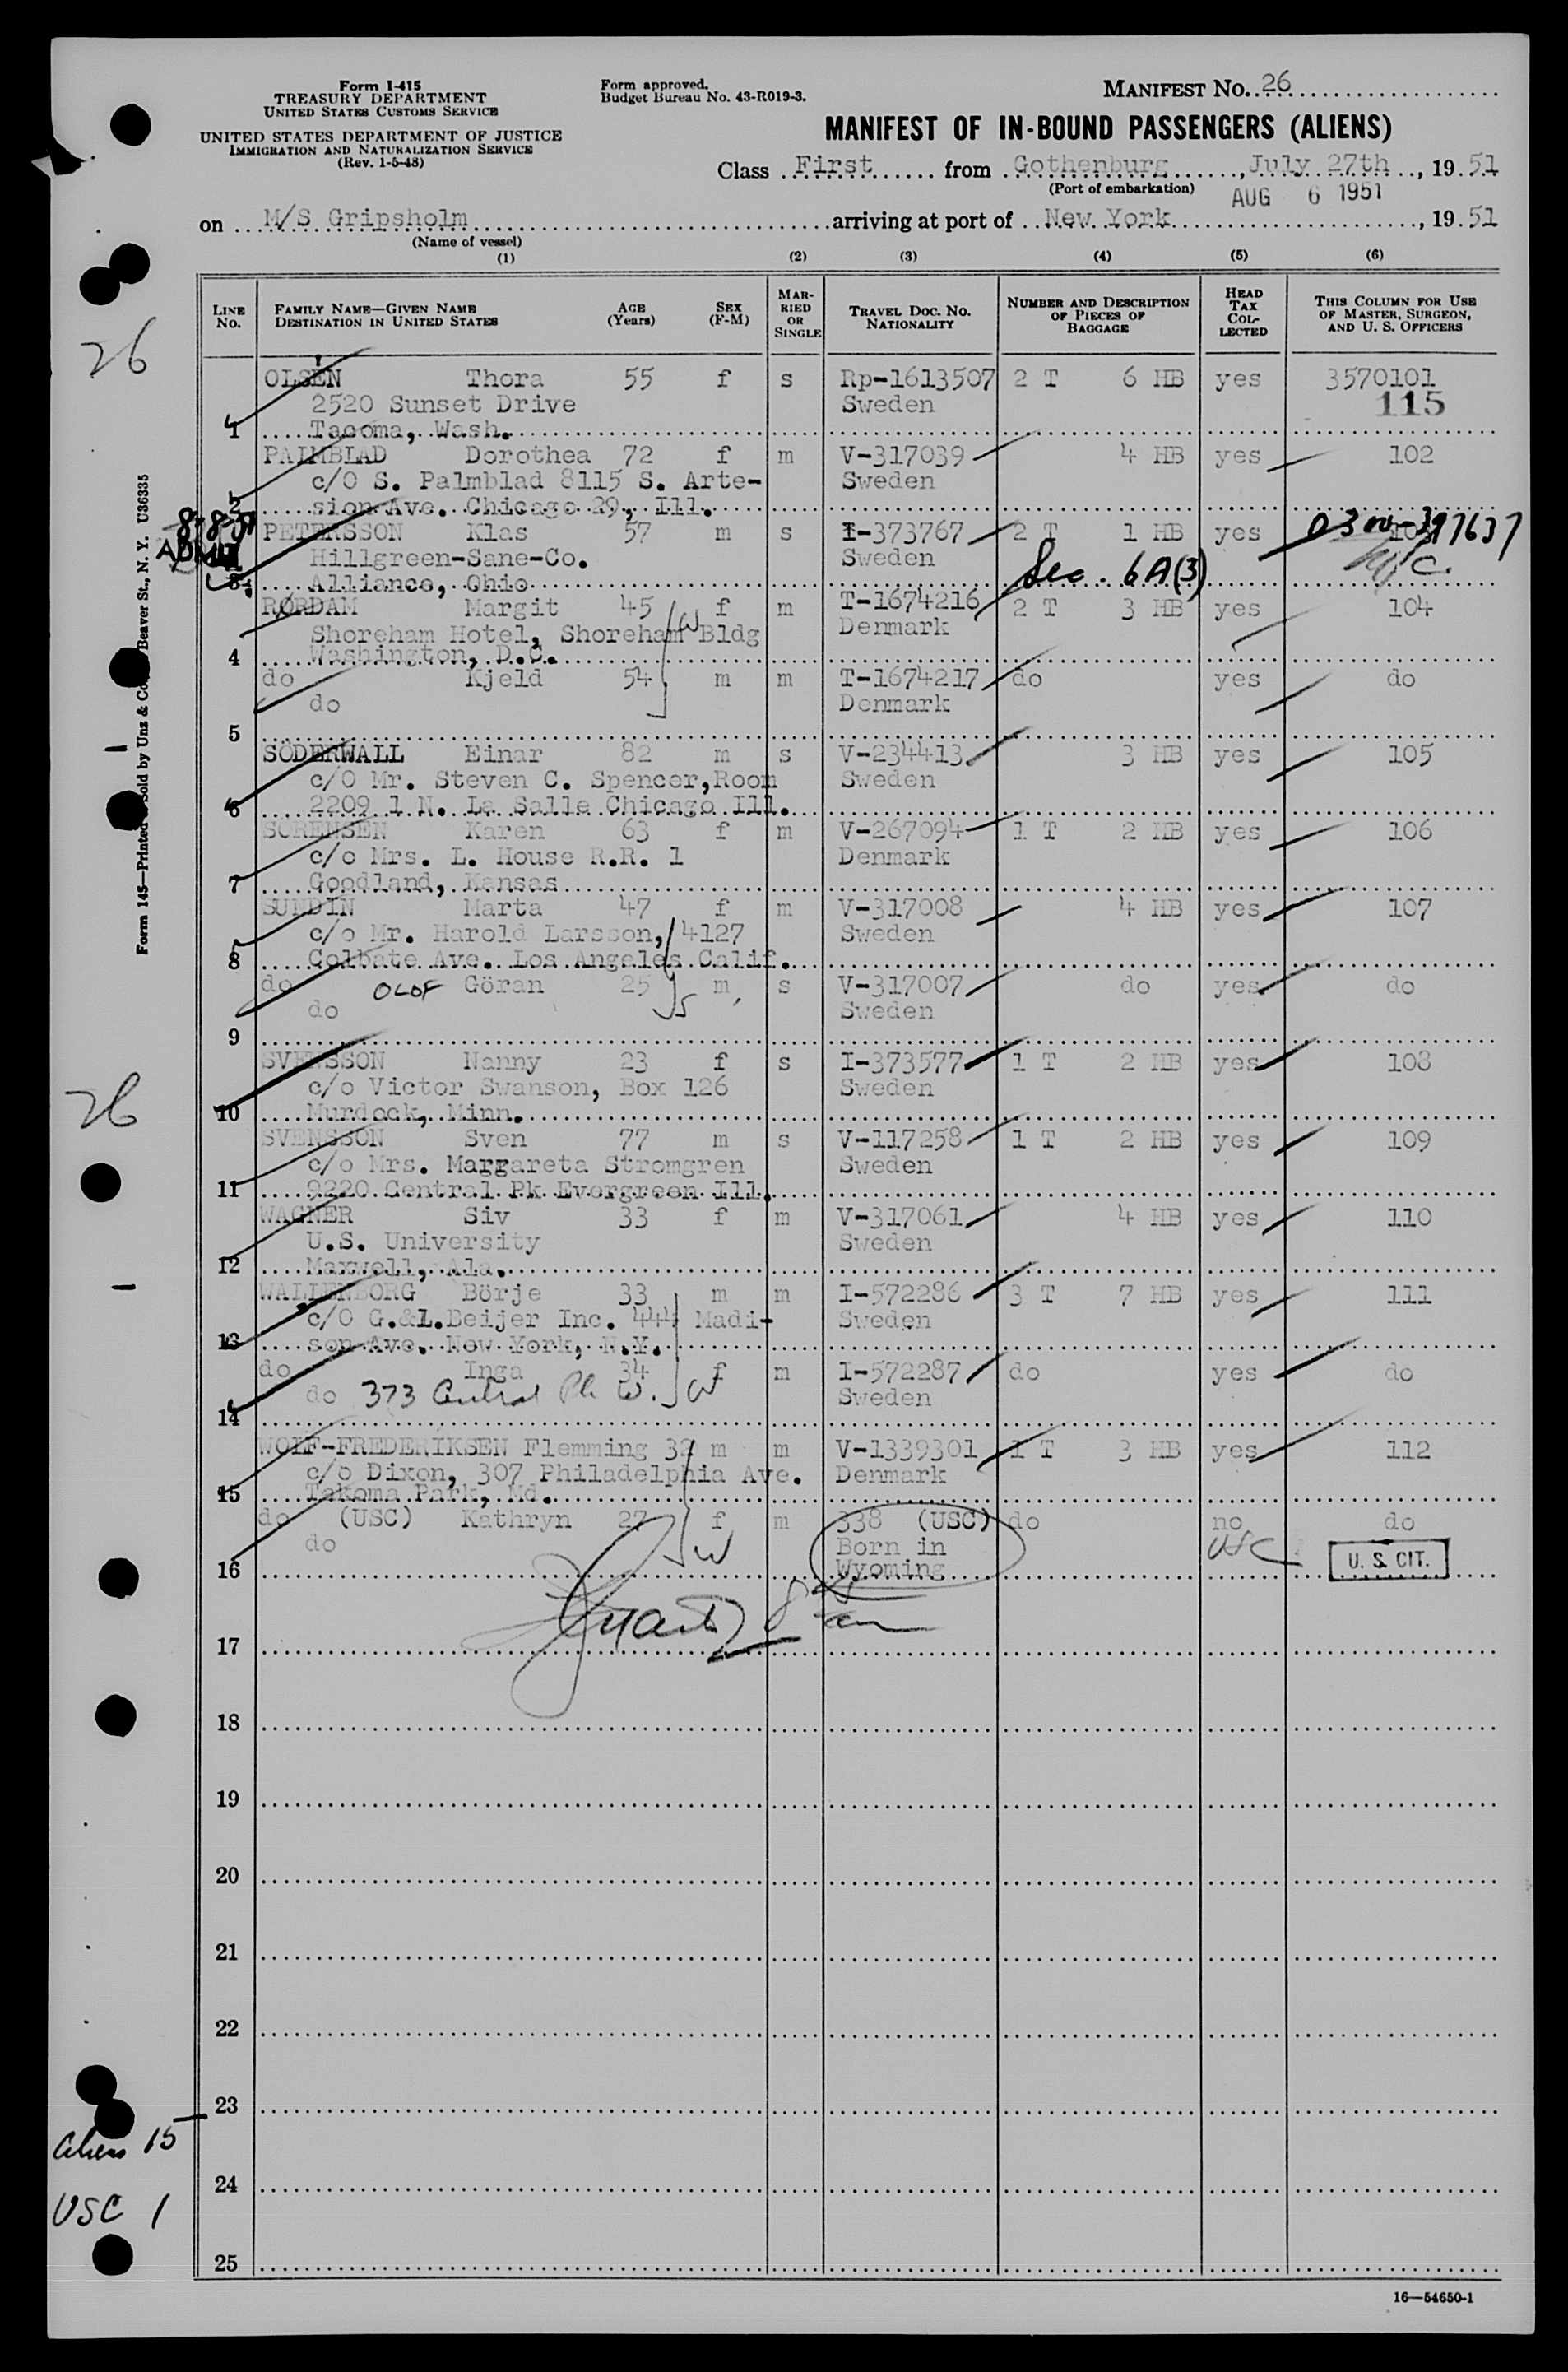 Form I-415
TREASURY DEPARTMENT
UNITED STATES CUSTOMS SERVICE
UNITED STATES DEPARTMENT OF JUSTICE
IMMIGRATION AND NATURALIZATION SERVICE
(Rev. 1-5-48)
Form approved.
Budget Bureau No. 43-R019-3.
MANIFEST No. 26
MANIFEST OF IN-BOUND PASSENGERS (ALIENS)
Class First from Gothenburg, July 27th, 1951
(Port of embarkation)
AUG 6 1951
on M/S Gripsholm arriving at port of New York, 1951
(Name of vessel)
(1) (2) (3) (4) (5) (6)
LINE No. FAMILY NAME—GIVEN NAME DESTINATION IN UNITED STATES AGE (Years) SEX (F-M) MARRIED OR SINGLE TRAVEL DOC. NO. NATIONALITY NUMBER AND DESCRIPTION OF PIECES OF BAGGAGE HEAD TAX COLLECTED THIS COLUMN FOR USE OF MASTER, SURGEON, AND U. S. OFFICERS
26
OLSEN Thora 55 f s Rp-1613507 2 T 6 HB yes 3570101
2520 Sunset Drive Sweden 115
1 Tacoma, Wash.
PALMBLAD Dorothea 72 f m V-317039 4 HB yes 102
c/O S. Palmblad 8115 S. Arte- Sweden
2 sion Ave. Chicago 29, Ill.
8-8-51
PETERSSON Klas 57 m s I-373767 2 T 1 HB yes 0300-397637
ADMIT
Hillgreen-Sane-Co. Sweden
Sec. 6A(3)
3 Alliance, Ohio
RØRDAM Margit 45 f m T-1674216 2 T 3 HB yes 104
Shoreham Hotel, Shoreham Bldg Denmark
W
4 Washington, D.C.
do Kjeld 54 m m T-1674217 do yes do
do Denmark
5
SÖDERWALL Einar 82 m s V-234413 3 HB yes 105
c/O Mr. Steven C. Spencer, Room Sweden
6 2209 1 N. La Salle Chicago Ill.
SORENSEN Karen 63 f m V-267094 1 T 2 HB yes 106
c/o Mrs. L. House R.R. 1 Denmark
7 Goodland, Kansas
SUNDIN Marta 47 f m V-317008 4 HB yes 107
c/o Mr. Harold Larsson, 4127 Sweden
8 Colbate Ave. Los Angeles Calif.
do OLOF Göran 25 m s V-317007 do yes do
do Sweden
9
SVENSSON Nanny 23 f s I-373577 1 T 2 HB yes 108
c/o Victor Swanson, Box 126 Sweden
26
10 Murdock, Minn.
SVENSSON Sven 77 m s V-117258 1 T 2 HB yes 109
c/o Mrs. Margareta Stromgren Sweden
11 9220 Central Pk Evergreen Ill.
WAGNER Siv 33 f m V-317061 4 HB yes 110
U.S. University Sweden
12 Maxwell, Ala.
WALLENBORG Börje 33 m m I-572286 3 T 7 HB yes 111
c/O G.&L.Beijer Inc. 444 Madi- Sweden
13 son Ave. New York, N.Y.
do Inga 34 f m I-572287 do yes do
do 373 Central Pk W. W Sweden
14
WOLF-FREDERIKSEN Flemming 32 m m V-1339301 1 T 3 HB yes 112
c/o Dixon, 307 Philadelphia Ave. Denmark
15 Takoma Park, Md.
do (USC) Kathryn 27 f m 338 (USC) do no do
do W Born in USC U. S. CIT.
16 Wyoming
17
18
19
20
21
22
23
Aliens 15
24
USC 1
25
16—54650-1